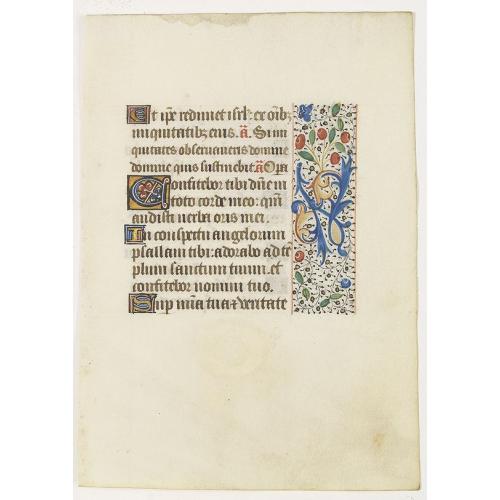 Et ip̄e redimet isrl̄: ex oībꝫ
iniquitatibꝫ eius. a̅. Si ini
quitates obseruaueris domine
domine quis sustinebit a̅ Opera
Confitebor tibi dn̄e in
toto corde meo: qm̄
audisti uerba oris mei.
In conspectu angelorum
psallam tibi: adorabo ad tē
plum sanctum tuum. et
confitebor nomini tuo.
Sup mīa tua ⁊ ueritate